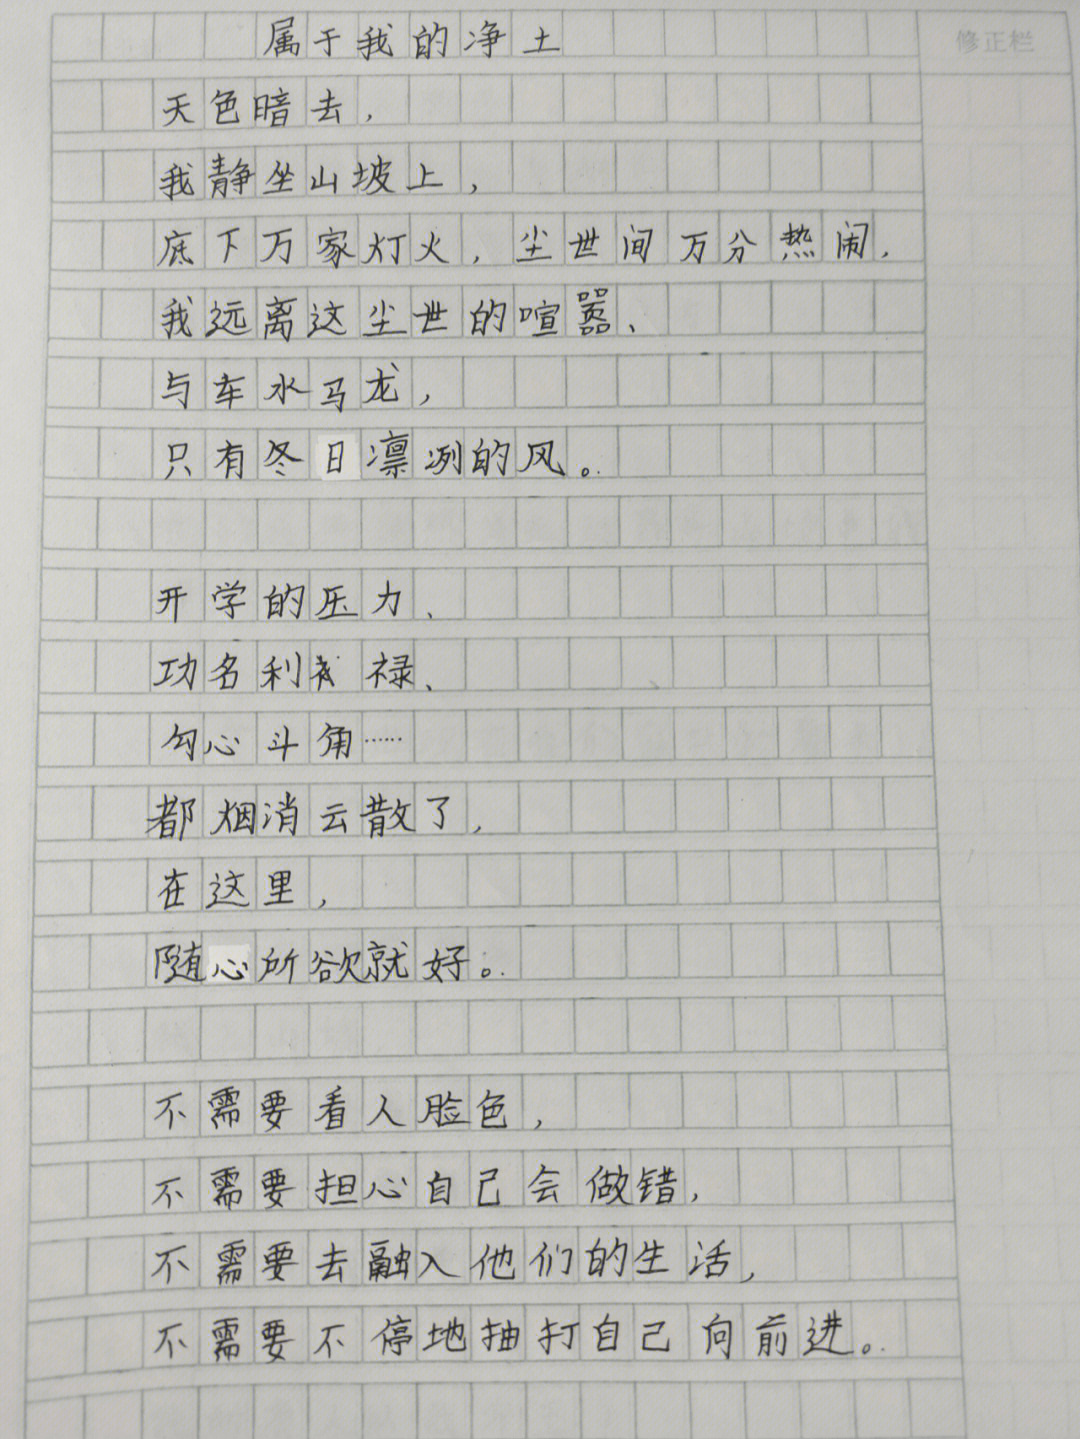 属于我的净土
修正栏
天色暗去，
我静坐山坡上，
底下万家灯火，尘世间万分热闹，
我远离这尘世的喧嚣、
与车水马龙，
只有冬日凛冽的风。
开学的压力、
功名利禄、
勾心斗角……
都烟消云散了，
在这里，
随心所欲就好。
不需要看人脸色，
不需要担心自己会做错，
不需要去融入他们的生活，
不需要不停地抽打自己向前进。